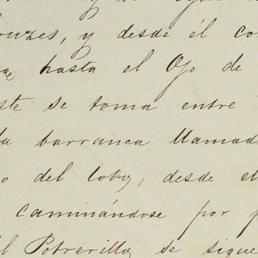 ruzes, y desde él co
hasta el Ojo de
ste se toma entre
la barranca llamad
o del lobo, desde el
caminándose por p
el Potrerillo se sigue